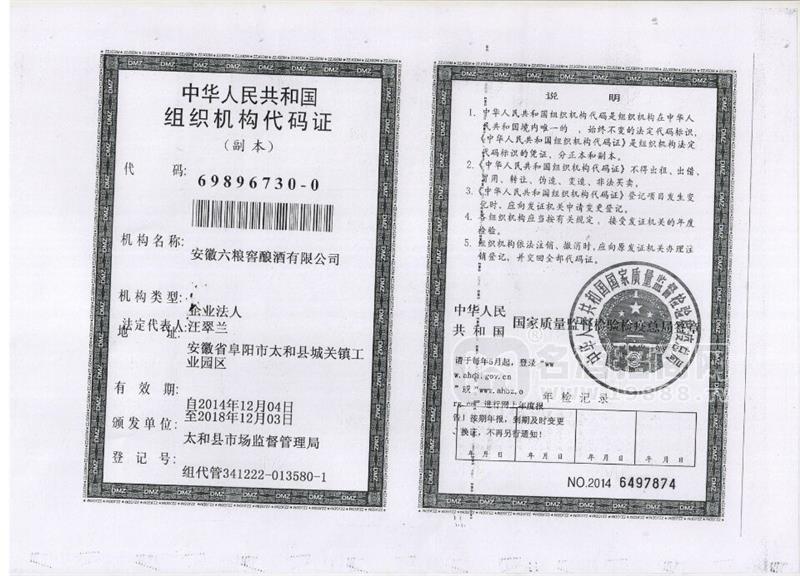 中华人民共和国
组织机构代码证
(副本)
代 码: 69896730-0
机构名称:
安徽六粮窖酿酒有限公司
机构类型:
企业法人
法定代表人:汪翠兰
地 址:
安徽省阜阳市太和县城关镇工
业园区
有 效 期:
自2014年12月04日
至2018年12月03日
颁发单位:
太和县市场监督管理局
登 记 号:
组代管341222-013580-1
说 明
1. 中华人民共和国组织机构代码是组织机构在中华人
民共和国境内唯一的、始终不变的法定代码标识,
《中华人民共和国组织机构代码证》是组织机构法定
代码标识的凭证,分正本和副本。
2.《中华人民共和国组织机构代码证》不得出租、出借、
冒用、转让、伪造、变造、非法买卖。
3.《中华人民共和国组织机构代码证》登记项目发生变
化时,应向发证机关申请变更登记。
4. 各组织机构应当按有关规定,接受发证机关的年度
检验。
5. 组织机构依法注销、撤消时,应向原发证机关办理注
销登记,并交回全部代码证。
中华人民
共和国 国家质量监督检验检疫总局签章
请于每年5月起,登录"ww
w.ahdi.gov.cn
"或"www.ahbz.o
rg.cn"进行网上年度报
告!按期年报,到期及时变更
、换证,不再另行通知!
年检记录
年 月 日 年 月 日 年 月 日 年 月 日
NO.2014 6497874
中华人民共和国国家质量监督检验检疫总局